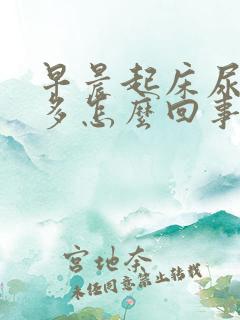 早晨起床尿
多怎麼回事
宮地奈
未经同意禁止转载